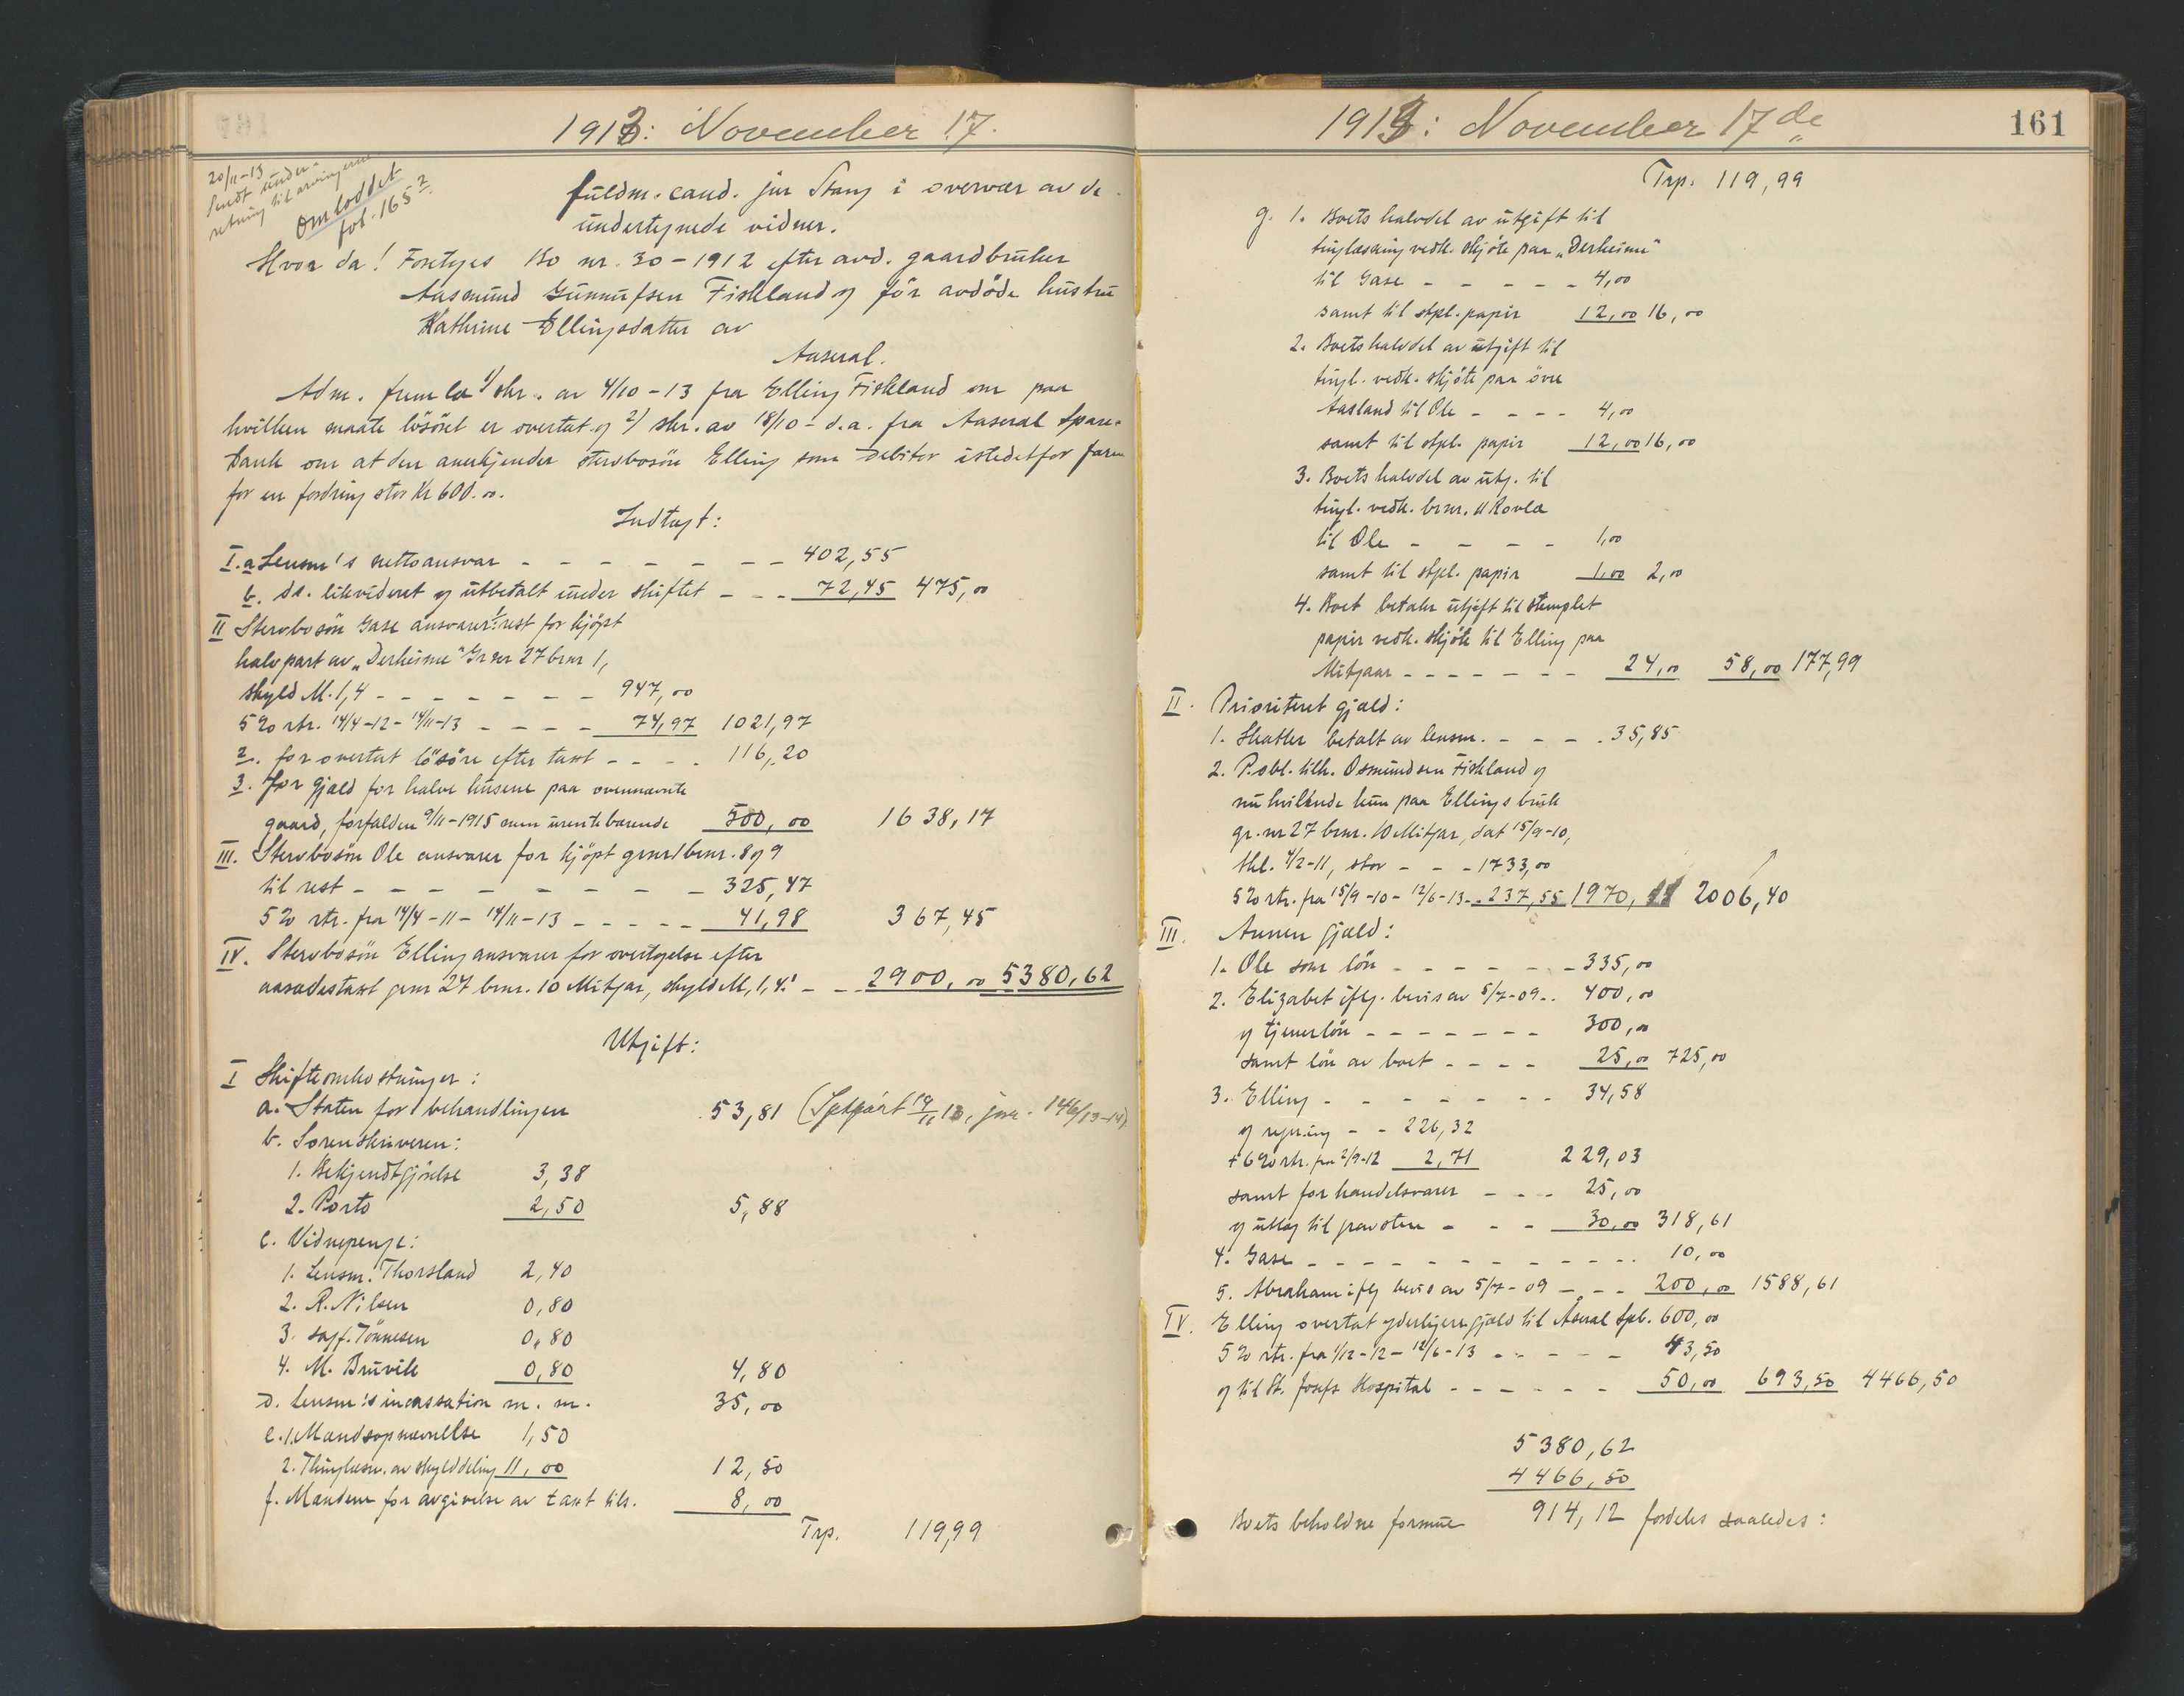 1913: November 17.
20/11-13
Sendt under-
retning til arvingerne
Omloddet
fol. 165²
fuldm. cand. jur Stang i overvær av de
undertegnede vidner.
Hvor da! Foretoges Bo nr. 30-1912 efter avd. gaardbruker
Aasmund Gunnufsen Fiskland og før avdøde hustru
Kathrine Ellingsdatter av
Aaseral.
Adm. fremla 1/ skr. av 4/10-13 fra Elling Fiskland om paa
hvilken maate løsøret er overtat og 2/ skr. av 18/10- d.a. fra Aaseral Spare-
bank om at den anerkjender stervbosøn Elling som debitor istedetfor faren
for en fordring stor Kr 600.00.
Indtægt:
I. a Lensm's nettoansvar - - - - - - - 402,55
b. do. likvideret og utbetalt under skiftet - - - 72,45 475,00
II Stervbosøn Gase ansvarer: 1/ rest for kjøpt
halvpart av „Derheime" Gr nr 27 brnr 1,
skyld M. 1,4 - - - - - - - 947,00
5% rtr. 14/4-12 - 14/11-13 - - - - 74,97 1021,97
2. for overtat løsøre efter taxt - - - - 116,20
3. for gjæld for halve husene paa ovennævnte
gaard, forfalden 9/11-1915 men urentebærende 500,00 1638,17
III. Stervbosøn Ole ansvarer for kjøpt grnr 1 brnr. 8 og 9
til rest - - - - - - - - 325,47
5% rtr. fra 14/4-11 - 14/11-13 - - - - - 41,98 367,45
IV. Stervbosøn Elling ansvarer for overtagelse efter
aasædestaxt grnr 27 brnr. 10 Mitjar, skyld M, 1,4: - - 2900,00 5380,62
Utgift:
I Skifteomkostninger:
a. Staten for behandlingen 53,81
b. Sorenskriveren:
1. Bekjendtgjørelse 3,38
2. Porto 2,50 5,88
c. Vidnepenge:
1. Lensm. Thorsland 2,40
2. R. Nilsen 0,80
3. sagf. Tønnesen 0,80
4. M. Bruvik 0,80 4,80
d. Lensm's incassation m. m. 35,00
e. 1. Mandsopnævnelse 1,50
2. Thinglæsn. av skylddeling 11,00 12,50
f. Mændene for avgivelse av taxt tils. 8,00
Trp. 119,99
1913: November 17de
161
Trp. 119,99
g. 1. Boets halvdel av utgift til
tinglæsning vedk. skjøte paa „Derheime"
til Gase - - - - - 4,00
samt til stpl. papir 12,00 16,00
2. Boets halvdel av utgift til
tingl. vedk. skjøte paa øvre
Aasland til Ole - - - - 4,00
samt til stpl. papir 12,00 16,00
3. Boets halvdel av utg. til
tingl. vedk. brnr. 11 Rovla
til Ole - - - - 1,00
samt til stpl. papir 1,00 2,00
4. Boet betaler utgift til stemplet
papir vedk. skjøte til Elling paa
Mitjaar - - - - - - - 24,00 58,00 177,99
II. Prioriteret gjæld:
1. Skatter betalt av lensm. - - - - 35,85
2. P.obl. tilh. Osmundsen Fiskland og
nu hvilende kun paa Ellings bruk
gr. nr 27 brnr. 10 Mitjar, dat 15/9-10,
thl. 4/2-11, stor - - - 1733,00
5% rtr. fra 15/9-10 - 12/6-13 - - 237,55 1970, 2006,40
III. Annen gjæld:
1. Ole som løn - - - - - - 335,00
2. Elizabet iflg. bevis av 5/7-09 - . 400,00
og tjenerløn - - - - - - - 300,00
samt løn av boet - - - - 25,00 725,00
3. Elling - - - - - - - 34,58
og regning - - 226,32
+ 6% rtr. fra 2/9-12 2,71 229,03
samt for handelsvarer - - - 25,00
og utlæg til gravsten - - - 30,00 318,61
4. Gase - - - - - - - - - - - 10,00
5. Abraham iflg bevis av 5/7-09 - - - 200,00 1588,61
IV. Elling overtat yderligere gjæld til Åseral Spb. 600,00
5% rtr. fra 1/12-12 - 12/6-13 - - - - - 43,50
og til St. Josefs Hospital - - - - - - 50,00 693,50 4466,50
5380,62
4466,50
Boets beholdne formue 914,12 fordeles saaledes: